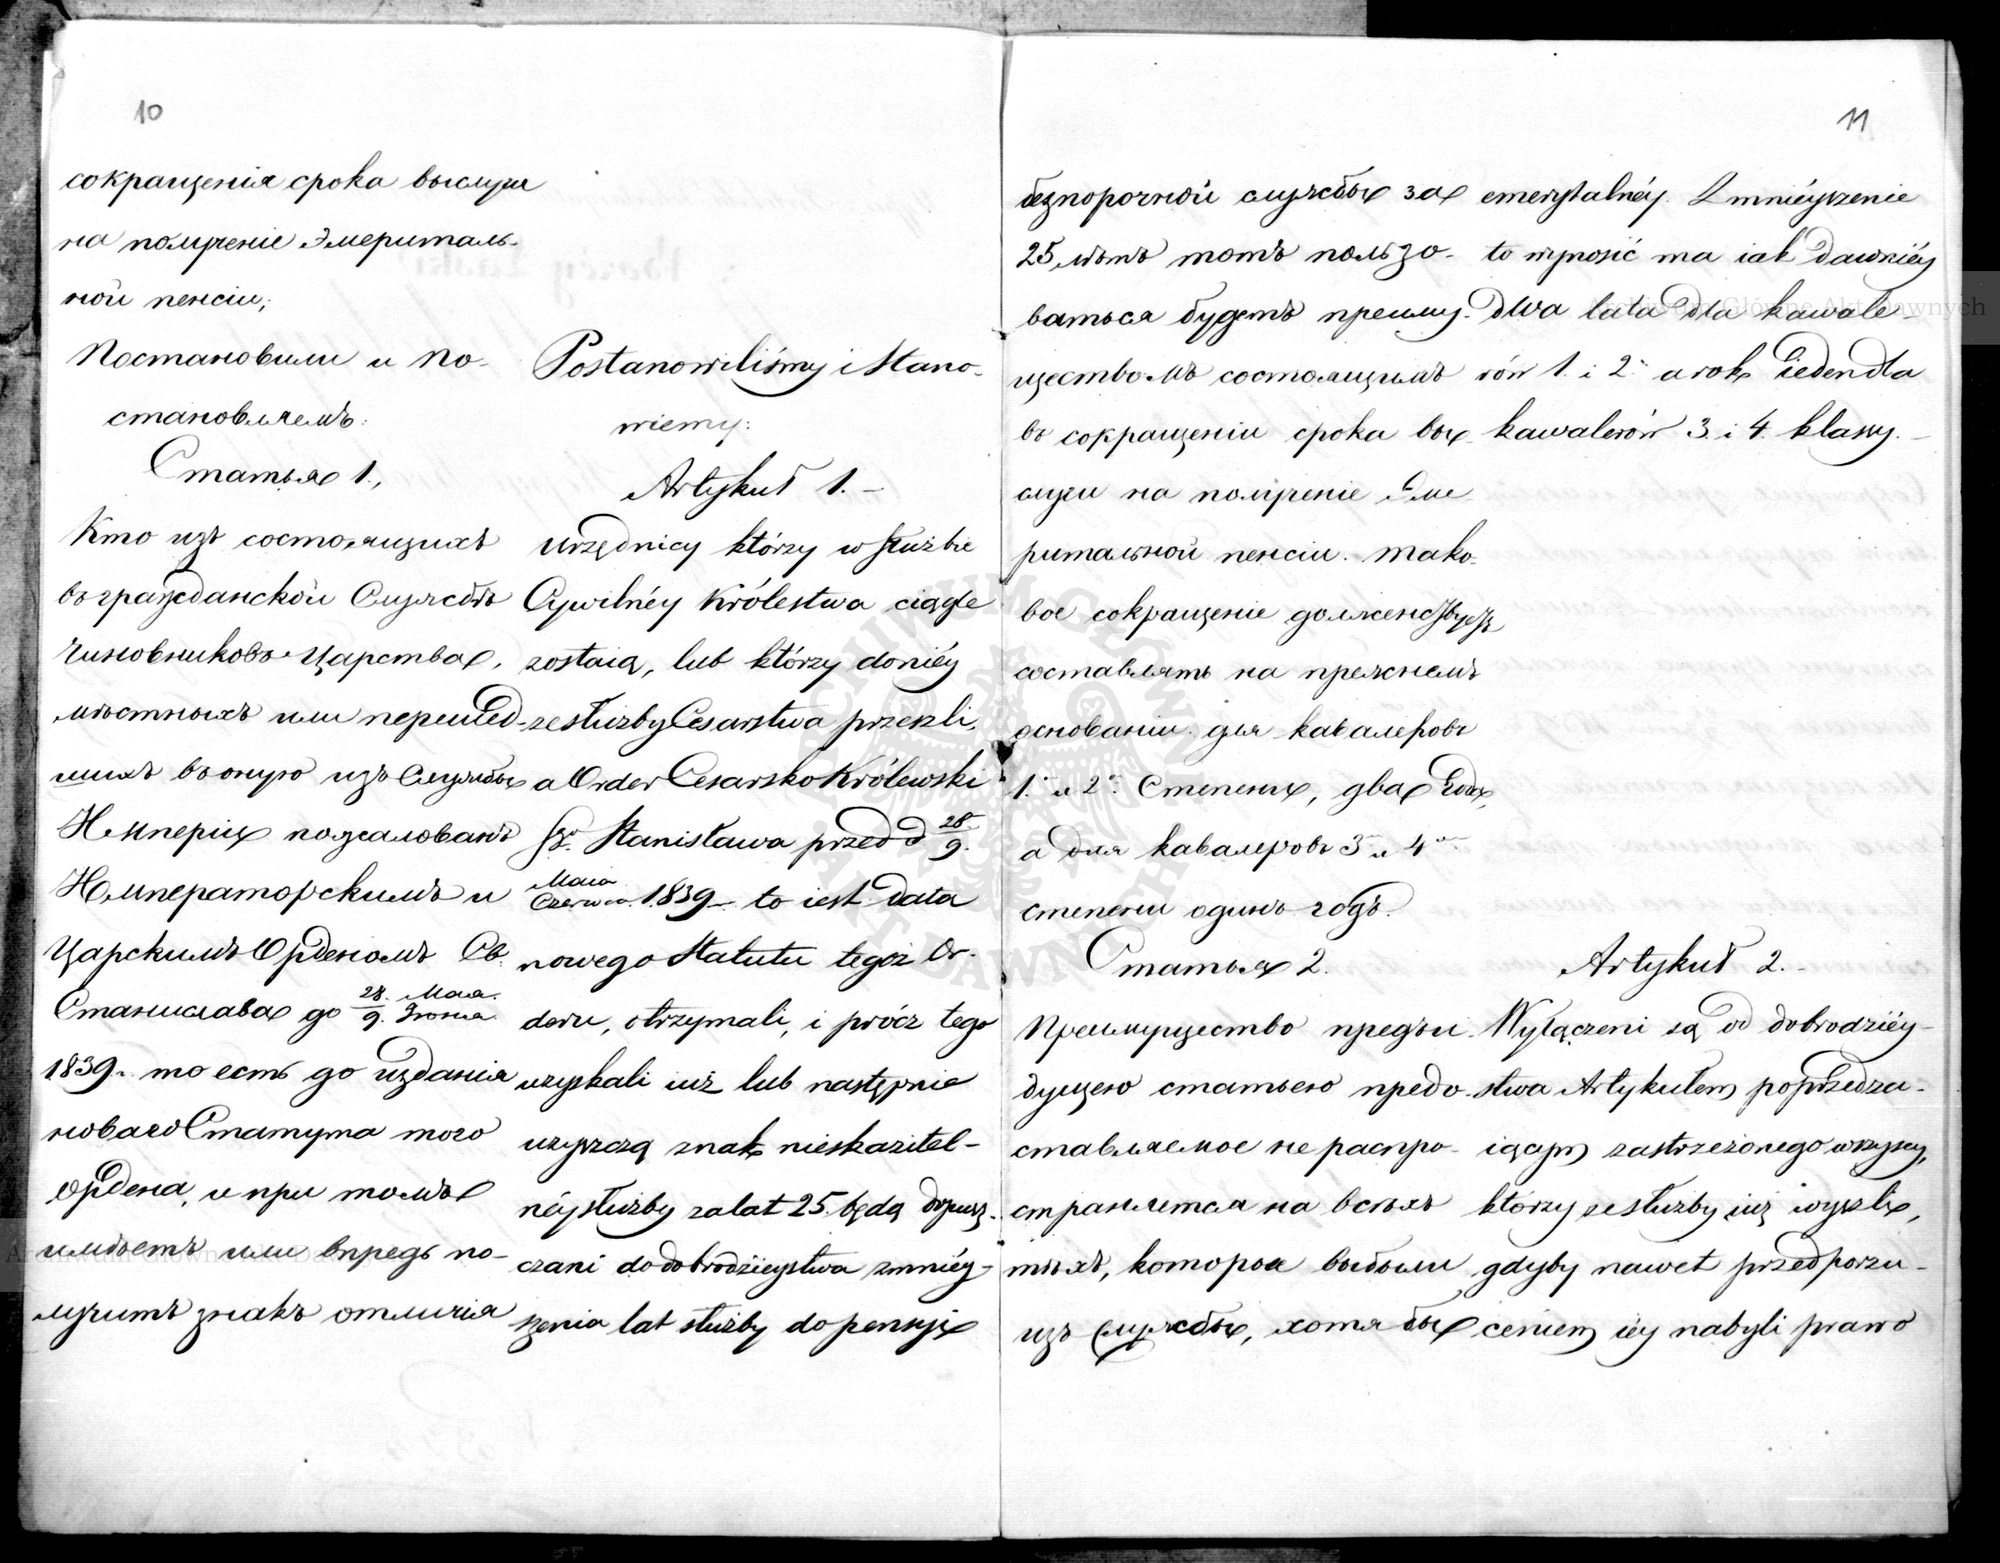 10
сокращенія срока выслуги
на полученіе Эмериталь-
ной пенсіи;
Постановили и По-
становляемъ:
Статья 1.,
Кто изъ состоящихъ
въ гражданской Службѣ
Чиновниковъ Царства,
мѣстныхъ или перешед-
шихъ въ оную изъ Службы
Имперіи пожалованъ
Императорскимъ и
Царскимъ Орденомъ Св.
Станислава до 28. Мая / 9. Іюня
1839. то есть до изданія
новаго Статута того
Ордена, и при томъ
имѣетъ или впредь по-
лучитъ знакъ отличія
Postanowiliśmy i Stano-
wiemy:
Artykuł 1. –
Urzędnicy którzy w służbie
Cywilnéy Królestwa ciągle
zostaią, lub którzy doniéy
ze służby Cesarstwa przeszli,
a Order Cesarsko Królewski
Sgo Stanisława przed d 28/9.
Maia/Czerwca 1839 – to iest data
nowego Statutu tegoż Or-
deru, otrzymali, i prócz tego
uzyskali iuż lub następnie
uzyszczą znak nieskazitel-
néy służby za lat 25. będą dopusz-
czani do dobrodzieystwa zmniéy-
szenia lat służby do pensyi
11
безпорочной службы за
25 лѣтъ тотъ пользо-
ваться будетъ преиму-
ществомъ состоящимъ
въ сокращеніи срока вы
слуги на полученіе Эме
ритальной пенсіи. Тако-
вое сокращеніе долженствуетъ
составлять на прежнемъ
основаніи для кавалеровъ
1й и 2й Степени, два года,
а для кавалеровъ 3й и 4й
степени одинъ годъ.
Статья 2.
Преимущество предъи-
дущею статьею предо-
ставляемое не распро-
страняется на всѣхъ
тѣхъ, которые выбыли
изъ Службы, хотя бы
emerytalnéy. Zmniéyszenie
to wynosić ma iak dawniéy
dwa lata dla kawale-
rów 1. i 2. a rok ieden dla
kawalerów 3. i 4. klassy. –
Artykuł 2. –
Wyłączeni są od dobrodziéy-
stwa Artykułem poprzedza-
iącym zastrzeżonego wszyscy,
którzy ze służby iuż wyszli,
gdyby nawet przed porzu-
ceniem iéy nabyli prawo
Archiwum Główne Akt Dawnych
ARCHIWUM GŁÓWNE AKT DAWNYCH